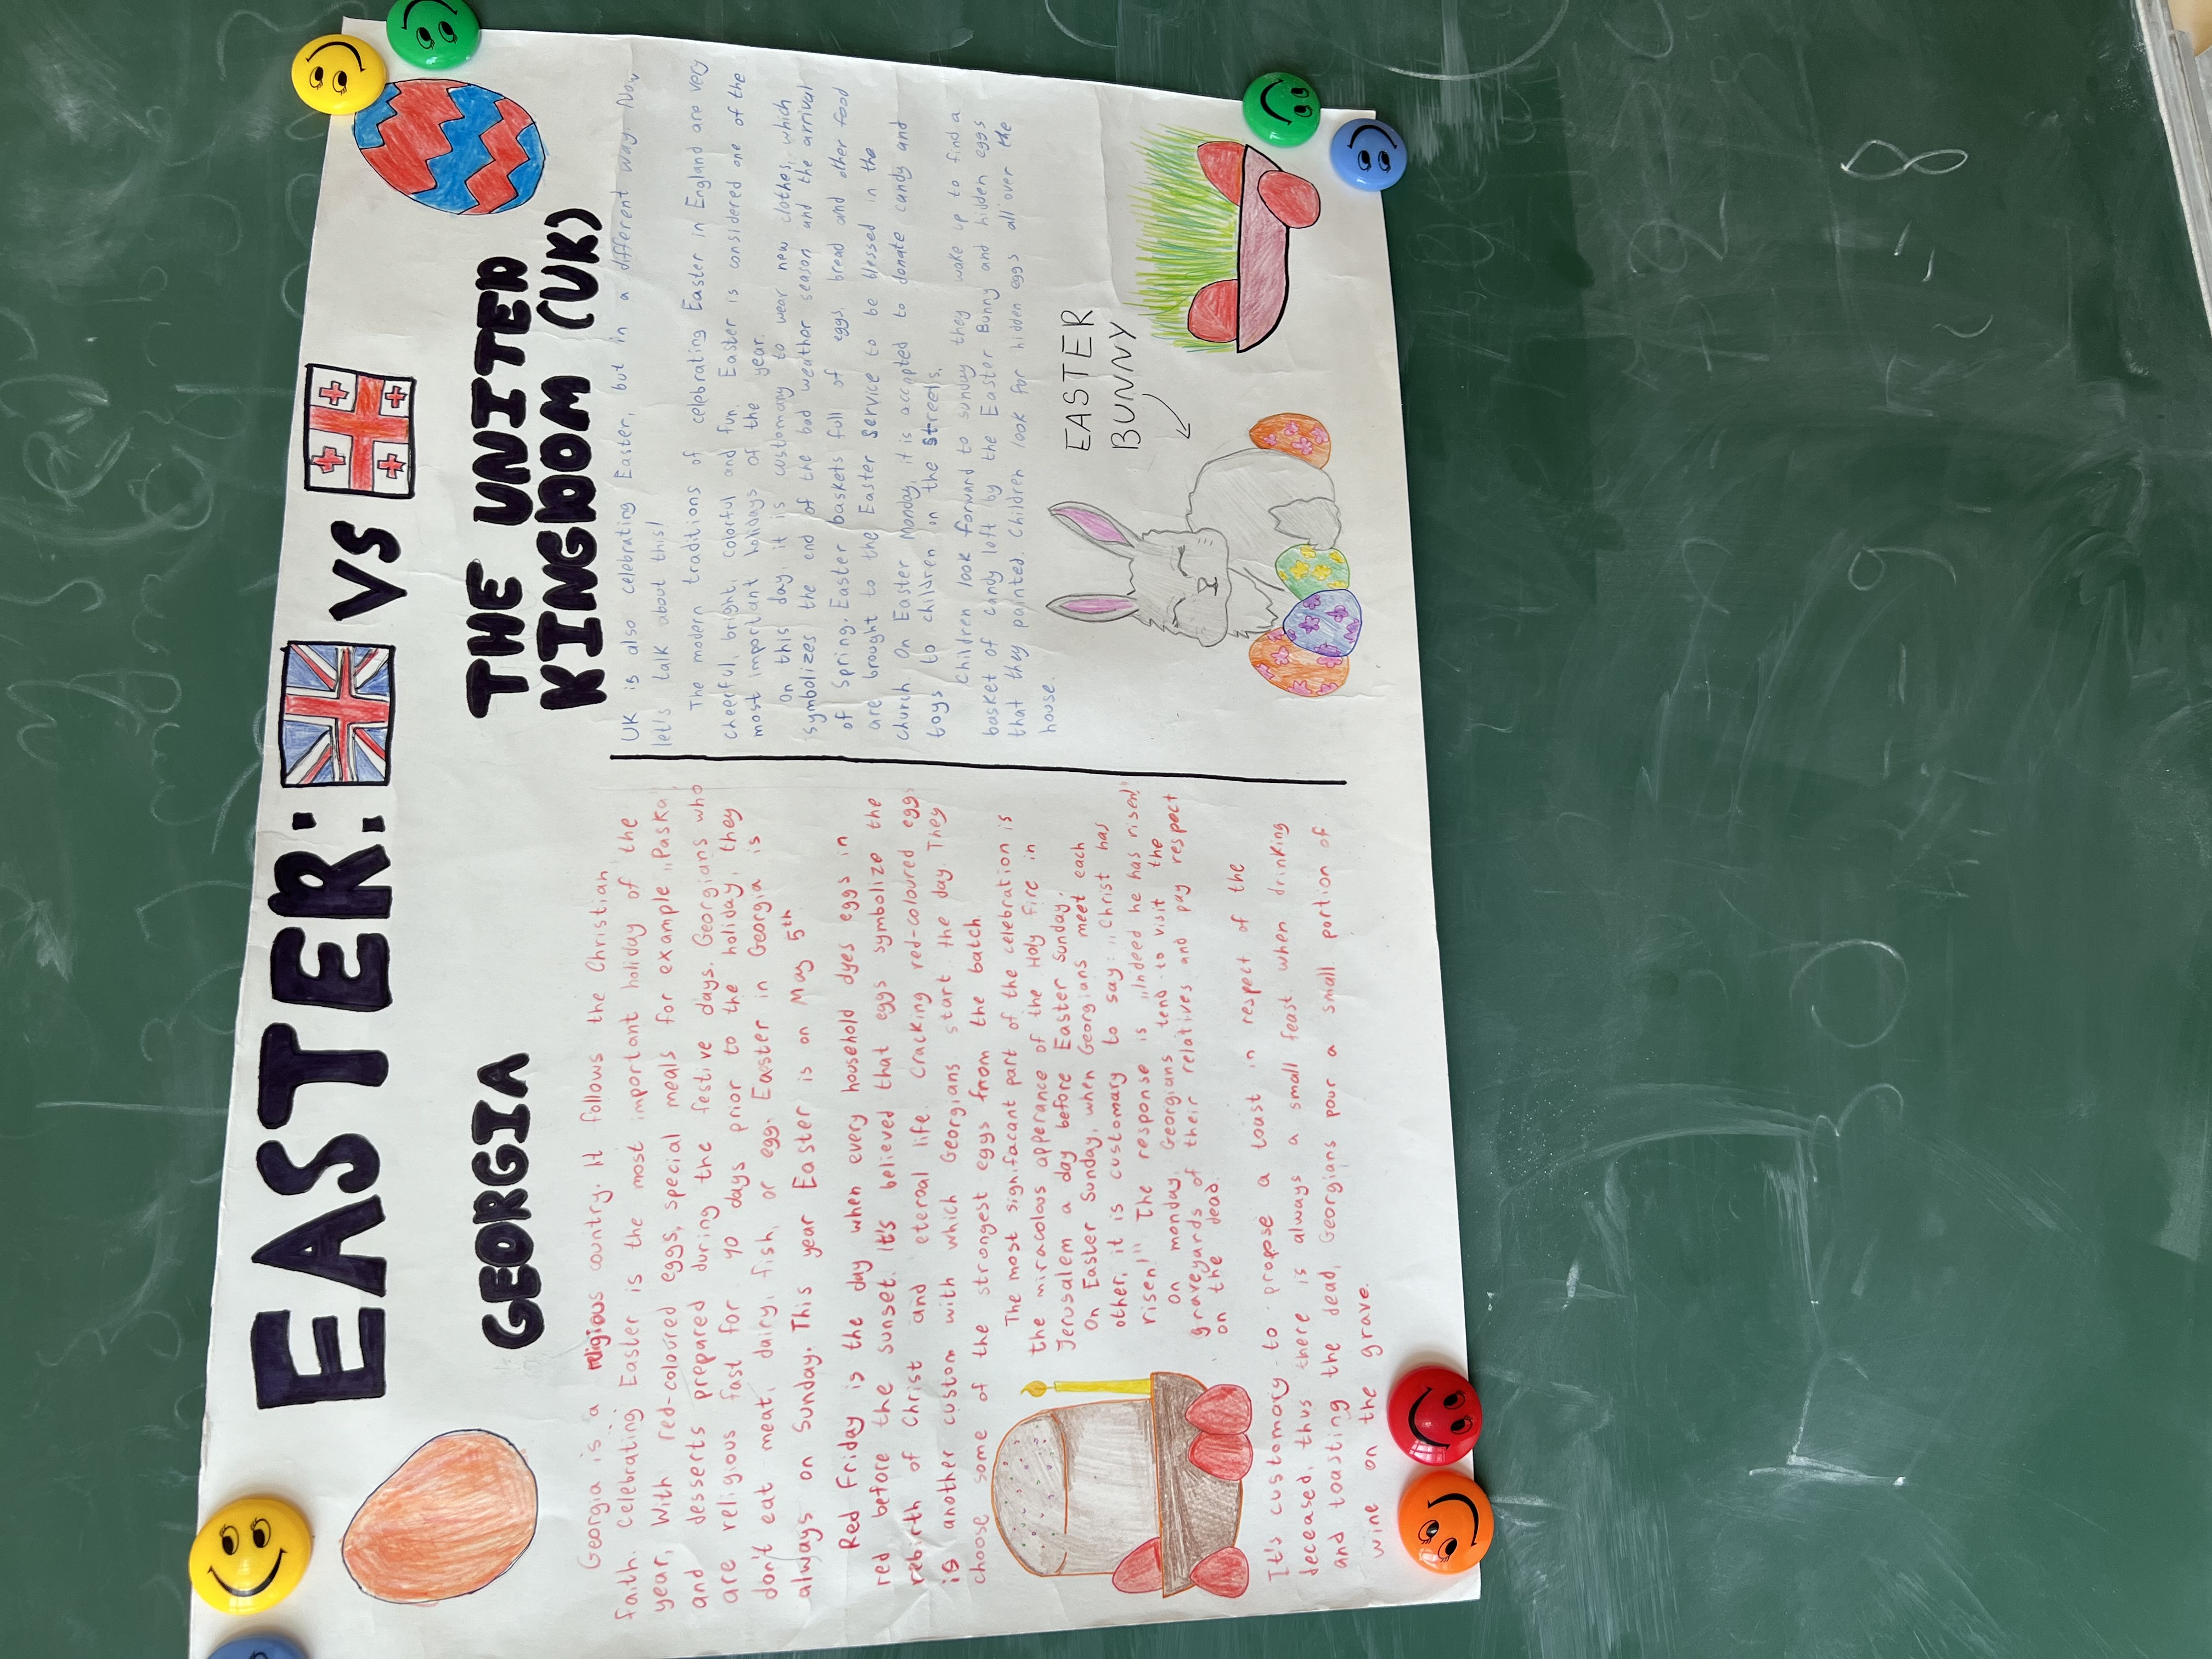 EASTER: VS
GEORGIA
Georgia is a religious country. It follows the Christian
faith. Celebrating Easter is the most important holiday of the
year, With red-coloured eggs, special meals for example „Paska"
and desserts prepared during the festive days. Georgians who
are religious fast for 40 days prior to the holiday, they
don't eat meat, dairy, fish, or egg. Easter in Georgia is
always on Sunday. This year Easter is on May 5th
Red Friday is the day when every household dyes eggs in
red before the sunset. It's believed that eggs symbolize the
rebirth of Christ and eternal life. Cracking red-coloured eggs
is another custom with which Georgians start the day. They
choose some of the strongest eggs from the batch.
The most signifacant part of the celebration is
the miracolous apperance of the Holy Fire in
Jerusalem a day before Easter Sunday.
On Easter Sunday, when Georgians meet each
other, it is customary to say: „Christ has
risen!" The response is „Indeed he has risen!"
On monday, Georgians tend to visit the
graveyards of their relatives and pay respect
on the dead.
It's customary to propose a toast in respect of the
deceased, thus there is always a small feast when drinking
and toasting the dead, Georgians pour a small portion of
wine on the grave.
THE UNITED
KINGDOM (UK)
UK is also celebrating Easter, but in a different way. Now
let's talk about this!
The modern traditions of celebrating Easter in England are very
cheerful, bright, colorful and fun. Easter is considered one of the
most important holidays of the year.
On this day, it is customary to wear new clothes, which
symbolizes the end of the bad weather season and the arrival
of Spring. Easter baskets full of eggs, bread and other food
are brought to the Easter Service to be blessed in the
church On Easter Monday, it is accepted to donate candy and
toys to children on the streets.
Children look forward to sunday they wake up to find a
basket of candy left by the Easter Bunny and hidden eggs
that they painted. Children look for hidden eggs all over the
house.
EASTER
BUNNY